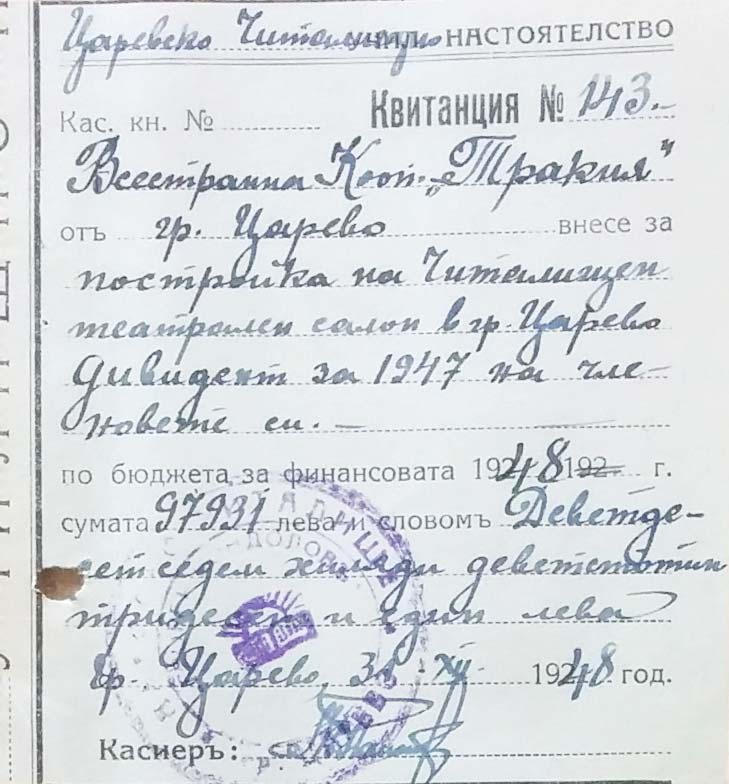 Царевско Читалищно НАСТОЯТЕЛСТВО
Кас. кн. № Квитанция № 143.-
Всестранна Кооп. „Тракия"
отъ гр. Царево внесе за
постройка на Читалищен
театрален салон в гр. Царево
Дивидент за 1947 на чле-
новете си. —
по бюджета за финансовата 1948 192 г.
сумата 97931 лева и словомъ Деветде-
сет седем хиляди деветстотин
тридесет и един лева
гр. Царево, 31 XII. 1948 год.
Касиеръ: